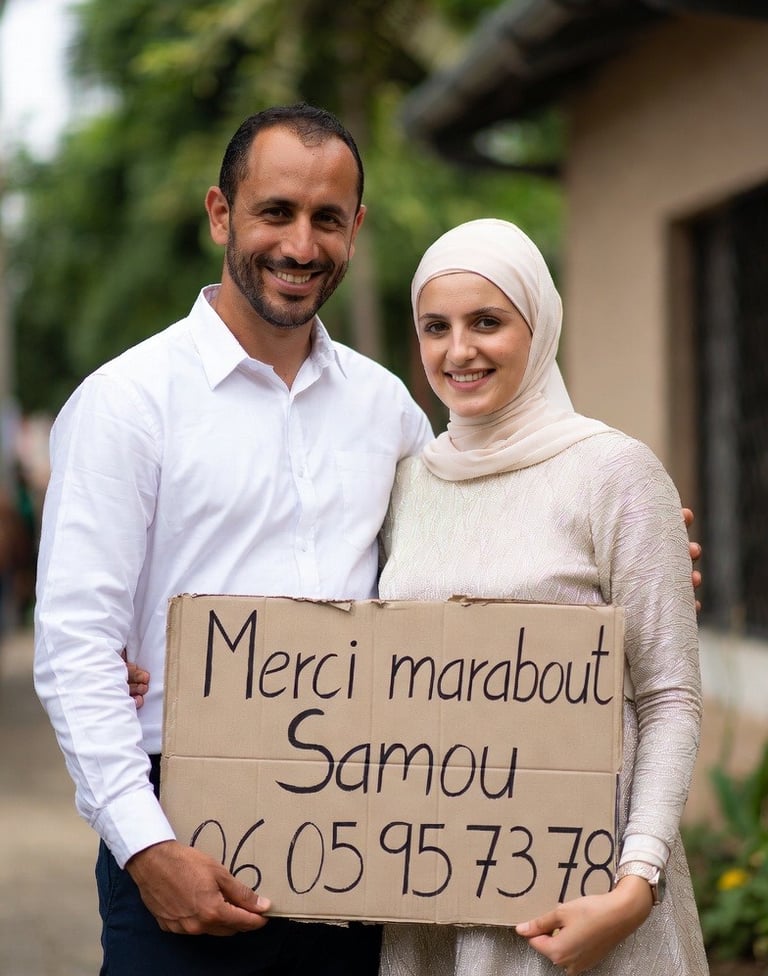 Merci marabout
Samou
06 05 95 73 78